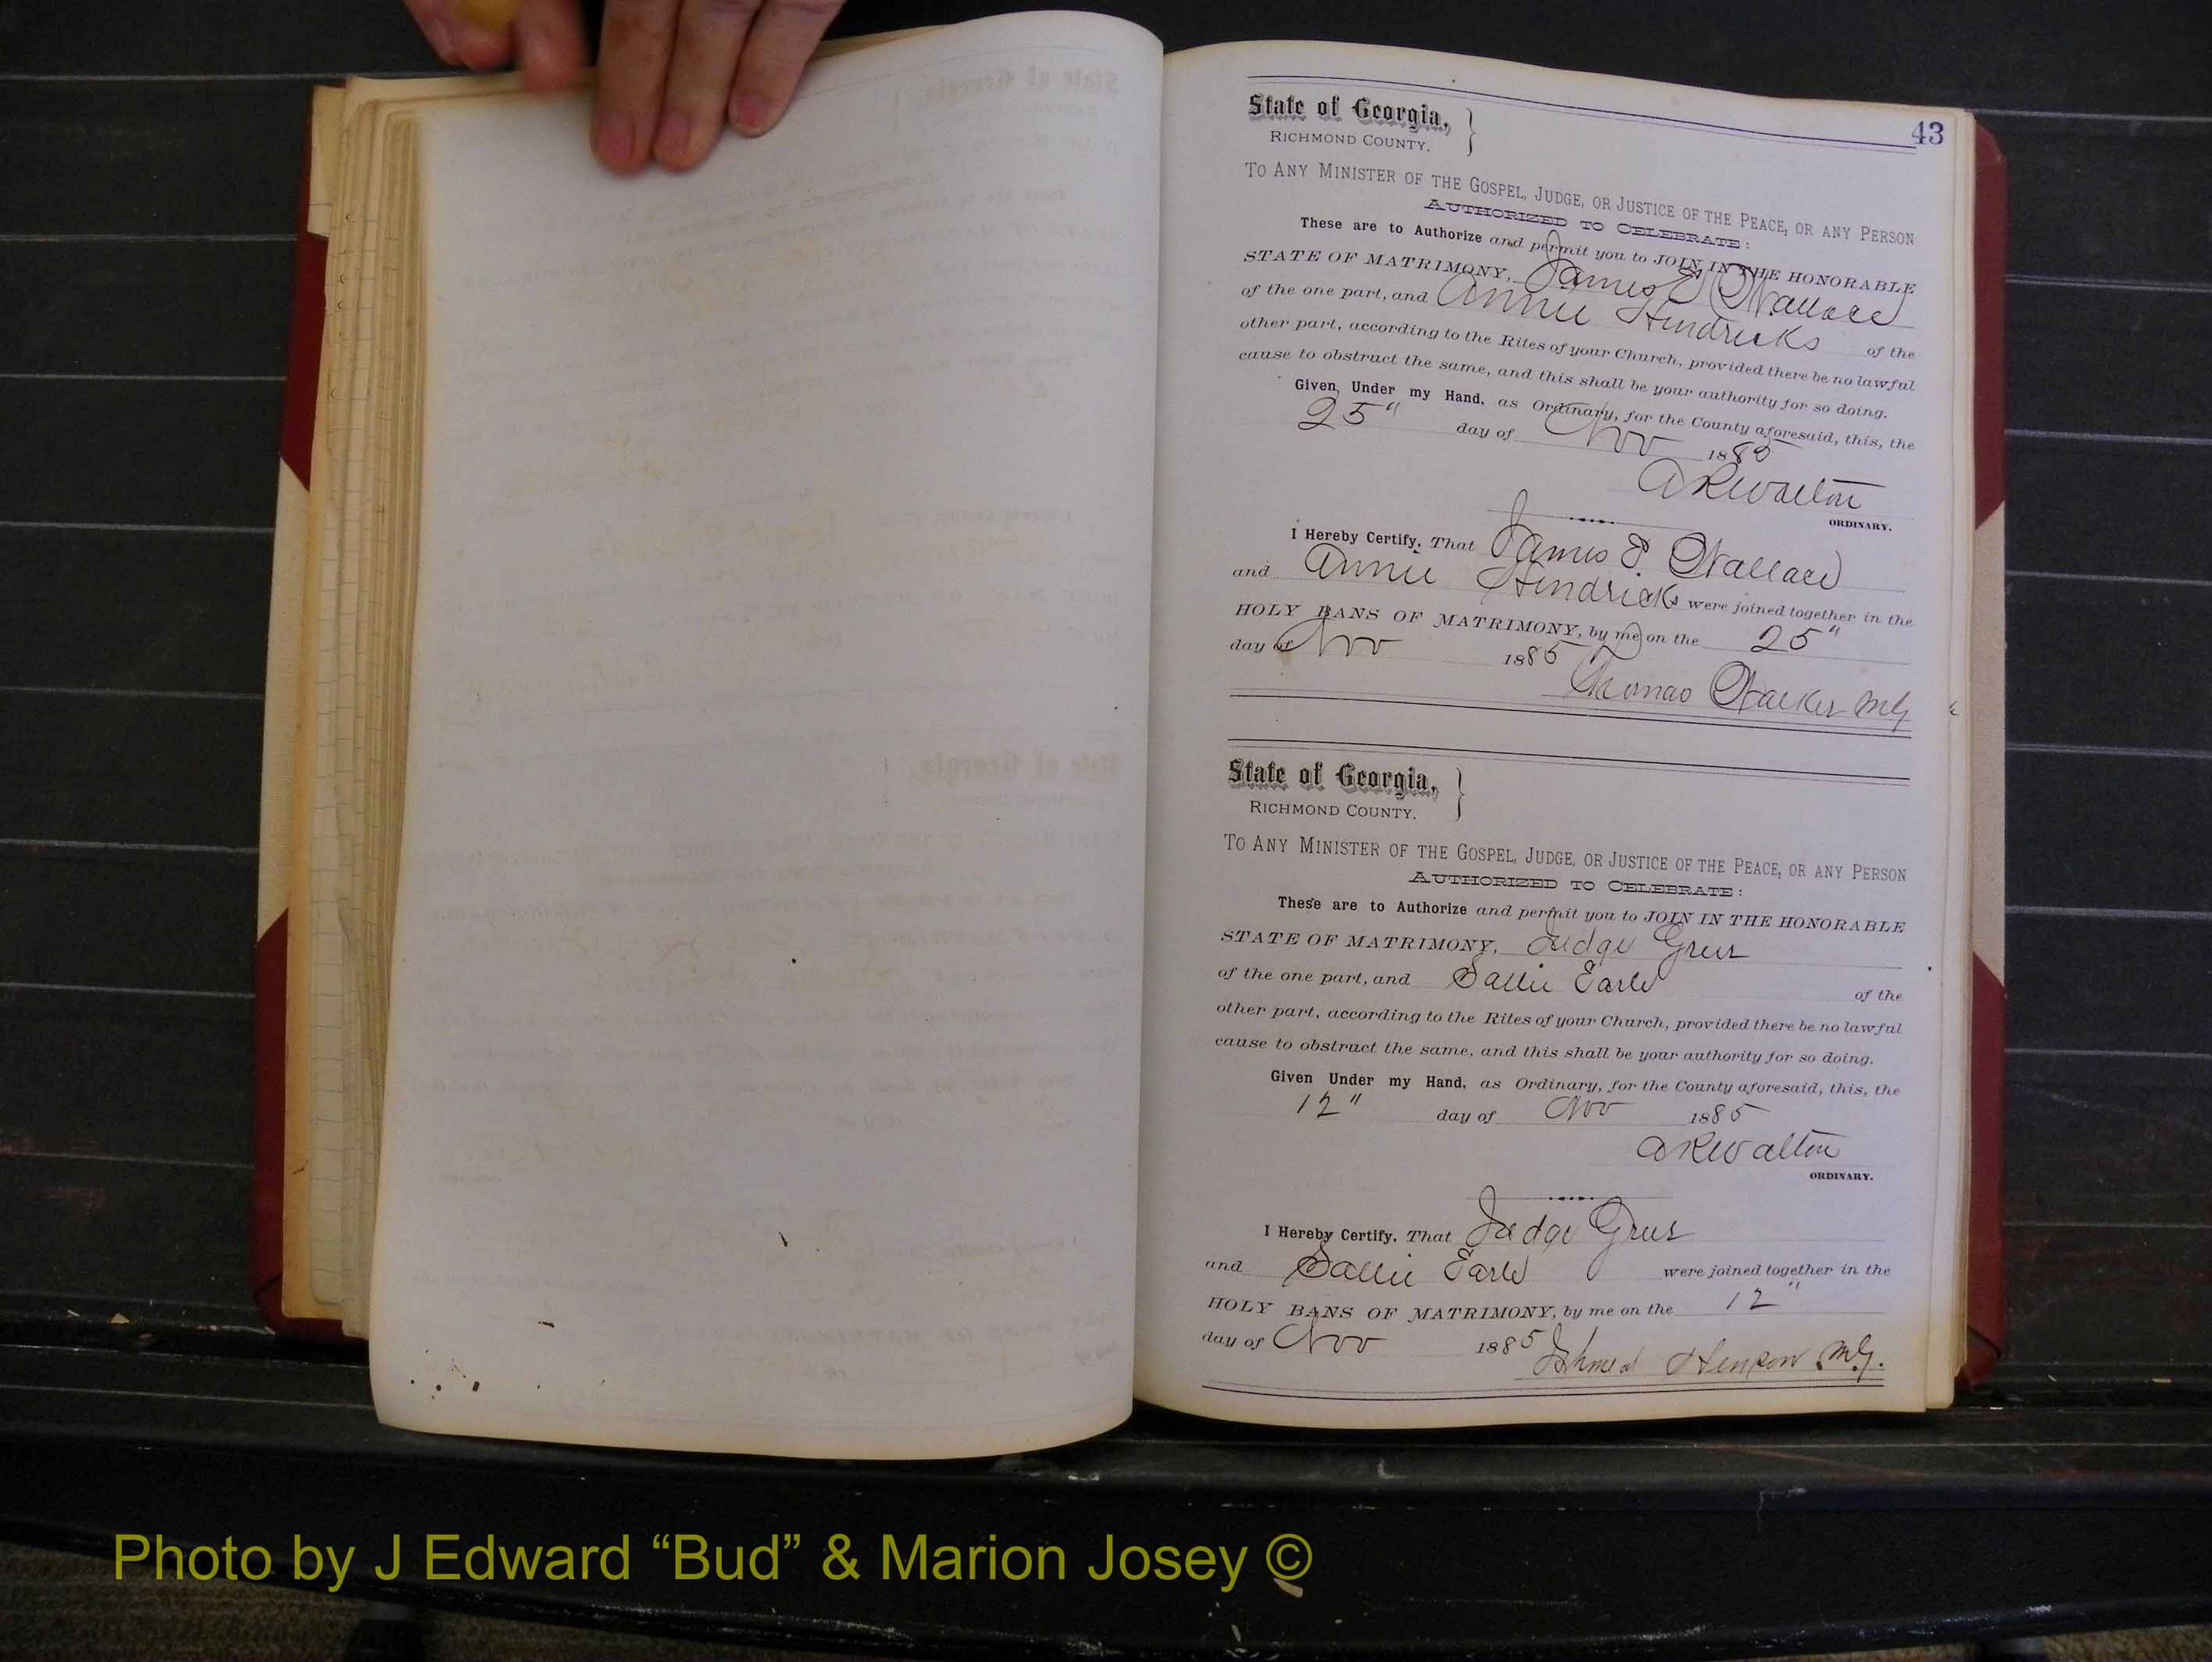 43
State of Georgia,
RICHMOND COUNTY.
TO ANY MINISTER OF THE GOSPEL, JUDGE, OR JUSTICE OF THE PEACE, OR ANY PERSON
AUTHORIZED TO CELEBRATE:
These are to Authorize and permit you to JOIN IN THE HONORABLE
STATE OF MATRIMONY, James E Wallace
of the one part, and Annie Hendricks of the
other part, according to the Rites of your Church, provided there be no lawful
cause to obstruct the same, and this shall be your authority for so doing.
Given Under my Hand, as Ordinary, for the County aforesaid, this, the
25" day of Nov 1885
A R Walton
ORDINARY.
I Hereby Certify, That James Wallace
and Annie Hendricks were joined together in the
HOLY BANS OF MATRIMONY, by me on the 25"
day of Nov 1885
Thomas Walker MG
State of Georgia,
RICHMOND COUNTY.
TO ANY MINISTER OF THE GOSPEL, JUDGE, OR JUSTICE OF THE PEACE, OR ANY PERSON
AUTHORIZED TO CELEBRATE:
These are to Authorize and permit you to JOIN IN THE HONORABLE
STATE OF MATRIMONY, Judge Greer
of the one part, and Sallie Earle of the
other part, according to the Rites of your Church, provided there be no lawful
cause to obstruct the same, and this shall be your authority for so doing.
Given Under my Hand, as Ordinary, for the County aforesaid, this, the
12" day of Nov 1885
A R Walton
ORDINARY.
I Hereby Certify, That Judge Greer
and Sallie Earle were joined together in the
HOLY BANS OF MATRIMONY, by me on the 12"
day of Nov 1885
Henson MG.
Photo by J Edward “Bud” & Marion Josey ©